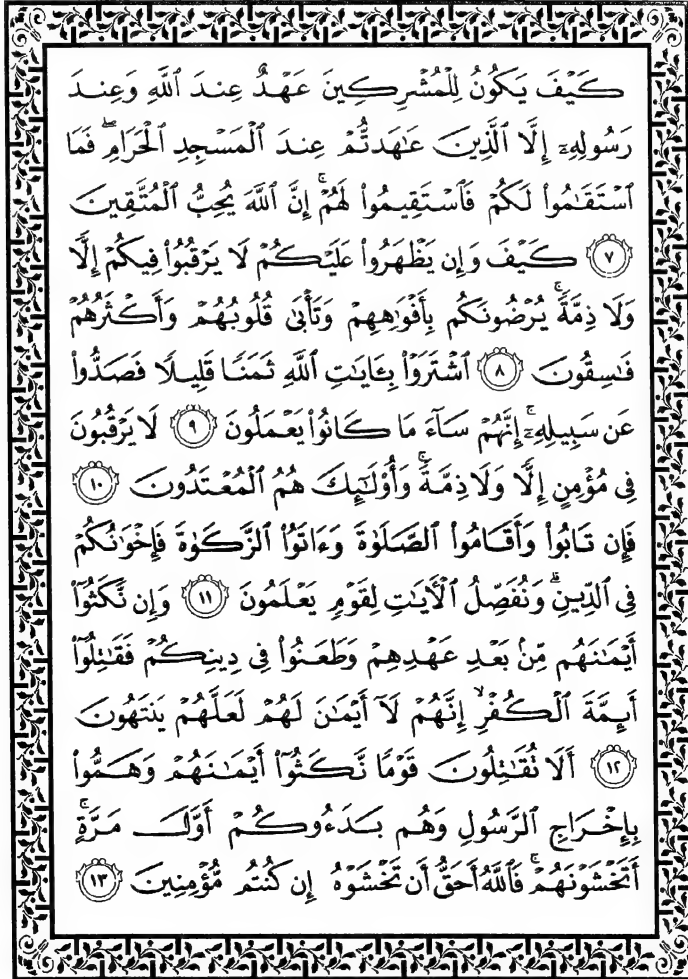 كَيْفَ يَكُونُ لِلْمُشْرِكِينَ عَهْدٌ عِندَ ٱللَّهِ وَعِندَ
رَسُولِهِۦٓ إِلَّا ٱلَّذِينَ عَٰهَدتُّمْ عِندَ ٱلْمَسْجِدِ ٱلْحَرَامِ ۖ فَمَا
ٱسْتَقَٰمُوا۟ لَكُمْ فَٱسْتَقِيمُوا۟ لَهُمْ ۚ إِنَّ ٱللَّهَ يُحِبُّ ٱلْمُتَّقِينَ
٧ كَيْفَ وَإِن يَظْهَرُوا۟ عَلَيْكُمْ لَا يَرْقُبُوا۟ فِيكُمْ إِلًّا
وَلَا ذِمَّةً ۚ يُرْضُونَكُم بِأَفْوَٰهِهِمْ وَتَأْبَىٰ قُلُوبُهُمْ وَأَكْثَرُهُمْ
فَٰسِقُونَ ٨ ٱشْتَرَوْا۟ بِـَٔايَٰتِ ٱللَّهِ ثَمَنًا قَلِيلًا فَصَدُّوا۟
عَن سَبِيلِهِۦٓ ۚ إِنَّهُمْ سَآءَ مَا كَانُوا۟ يَعْمَلُونَ ٩ لَا يَرْقُبُونَ
فِى مُؤْمِنٍ إِلًّا وَلَا ذِمَّةً ۚ وَأُو۟لَٰٓئِكَ هُمُ ٱلْمُعْتَدُونَ ١٠
فَإِن تَابُوا۟ وَأَقَامُوا۟ ٱلصَّلَوٰةَ وَءَاتَوُا۟ ٱلزَّكَوٰةَ فَإِخْوَٰنُكُمْ
فِى ٱلدِّينِ ۗ وَنُفَصِّلُ ٱلْءَايَٰتِ لِقَوْمٍ يَعْلَمُونَ ١١ وَإِن نَّكَثُوٓا۟
أَيْمَٰنَهُم مِّنۢ بَعْدِ عَهْدِهِمْ وَطَعَنُوا۟ فِى دِينِكُمْ فَقَٰتِلُوٓا۟
أَئِمَّةَ ٱلْكُفْرِ ۙ إِنَّهُمْ لَآ أَيْمَٰنَ لَهُمْ لَعَلَّهُمْ يَنتَهُونَ
١٢ أَلَا تُقَٰتِلُونَ قَوْمًا نَّكَثُوٓا۟ أَيْمَٰنَهُمْ وَهَمُّوا۟
بِإِخْرَاجِ ٱلرَّسُولِ وَهُم بَدَءُوكُمْ أَوَّلَ مَرَّةٍ ۚ
أَتَخْشَوْنَهُمْ ۚ فَٱللَّهُ أَحَقُّ أَن تَخْشَوْهُ إِن كُنتُم مُّؤْمِنِينَ ١٣